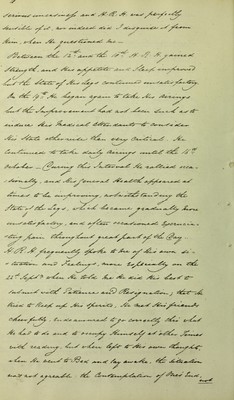 serious uneasiness and H.R.H. was perfectly
sensible of it, nor indeed did I disguise it from
Him, when He questioned me.
Between the 12th and the 18th H.R.H. gained
Strength, and His appetite and Sleep improved
but the State of His Legs continued unsatisfactory
On the 19th He began again to take His airings
but the Improvement had not been such as to
induce His Medical attendants to consider
His State otherwise than very critical. He
continued to take daily airings until the 16th
October. During this Interval He rallied occa-
sionally, and His general Health appeared at
times to be improving, notwithstanding the
State of the Legs, which became gradually more
unsatisfactory, and often occasioned excrucia-
ting pain throughout great part of the Day.
H.R.H. frequently spoke to me of His own si-
tuation and Feelings, more especially on the
22d Septr when He told me He did His best to
submit with Patience and Resignation; that He
tried to keep up His Spirits, He met His friends
cheerfully, endeavoured to go correctly thro' what
He had to do and to occupy Himself at other Times
with reading, but when left to His own thoughts,
when He went to Bed and lay awake, the situation
was not agreeable, the Contemplation of One's End, not